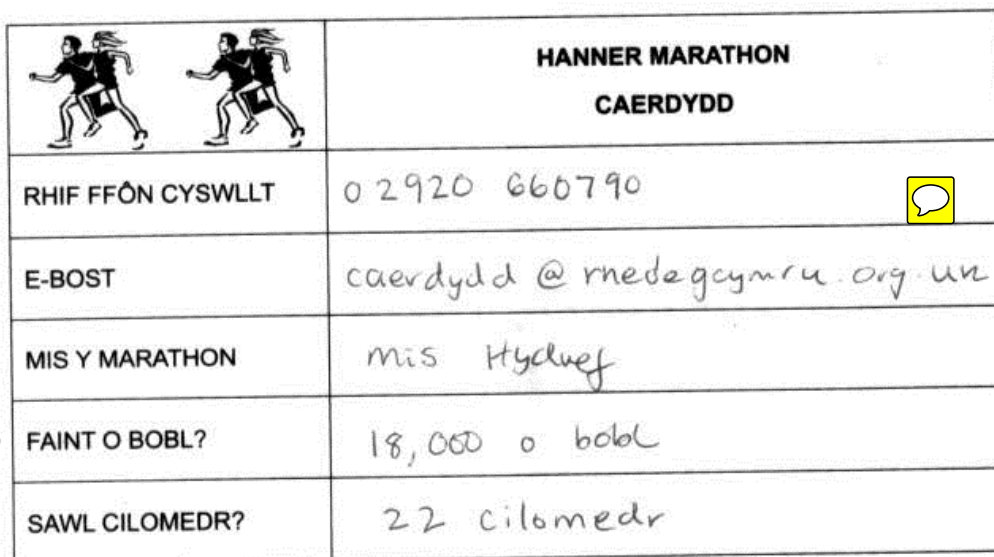 HANNER MARATHON
CAERDYDD
RHIF FFÔN CYSWLLT
02920 660790
E-BOST
caerdydd @ rhedegcymru.org.uk
MIS Y MARATHON
mis Hydref
FAINT O BOBL?
18,000 o bobl
SAWL CILOMEDR?
22 cilomedr